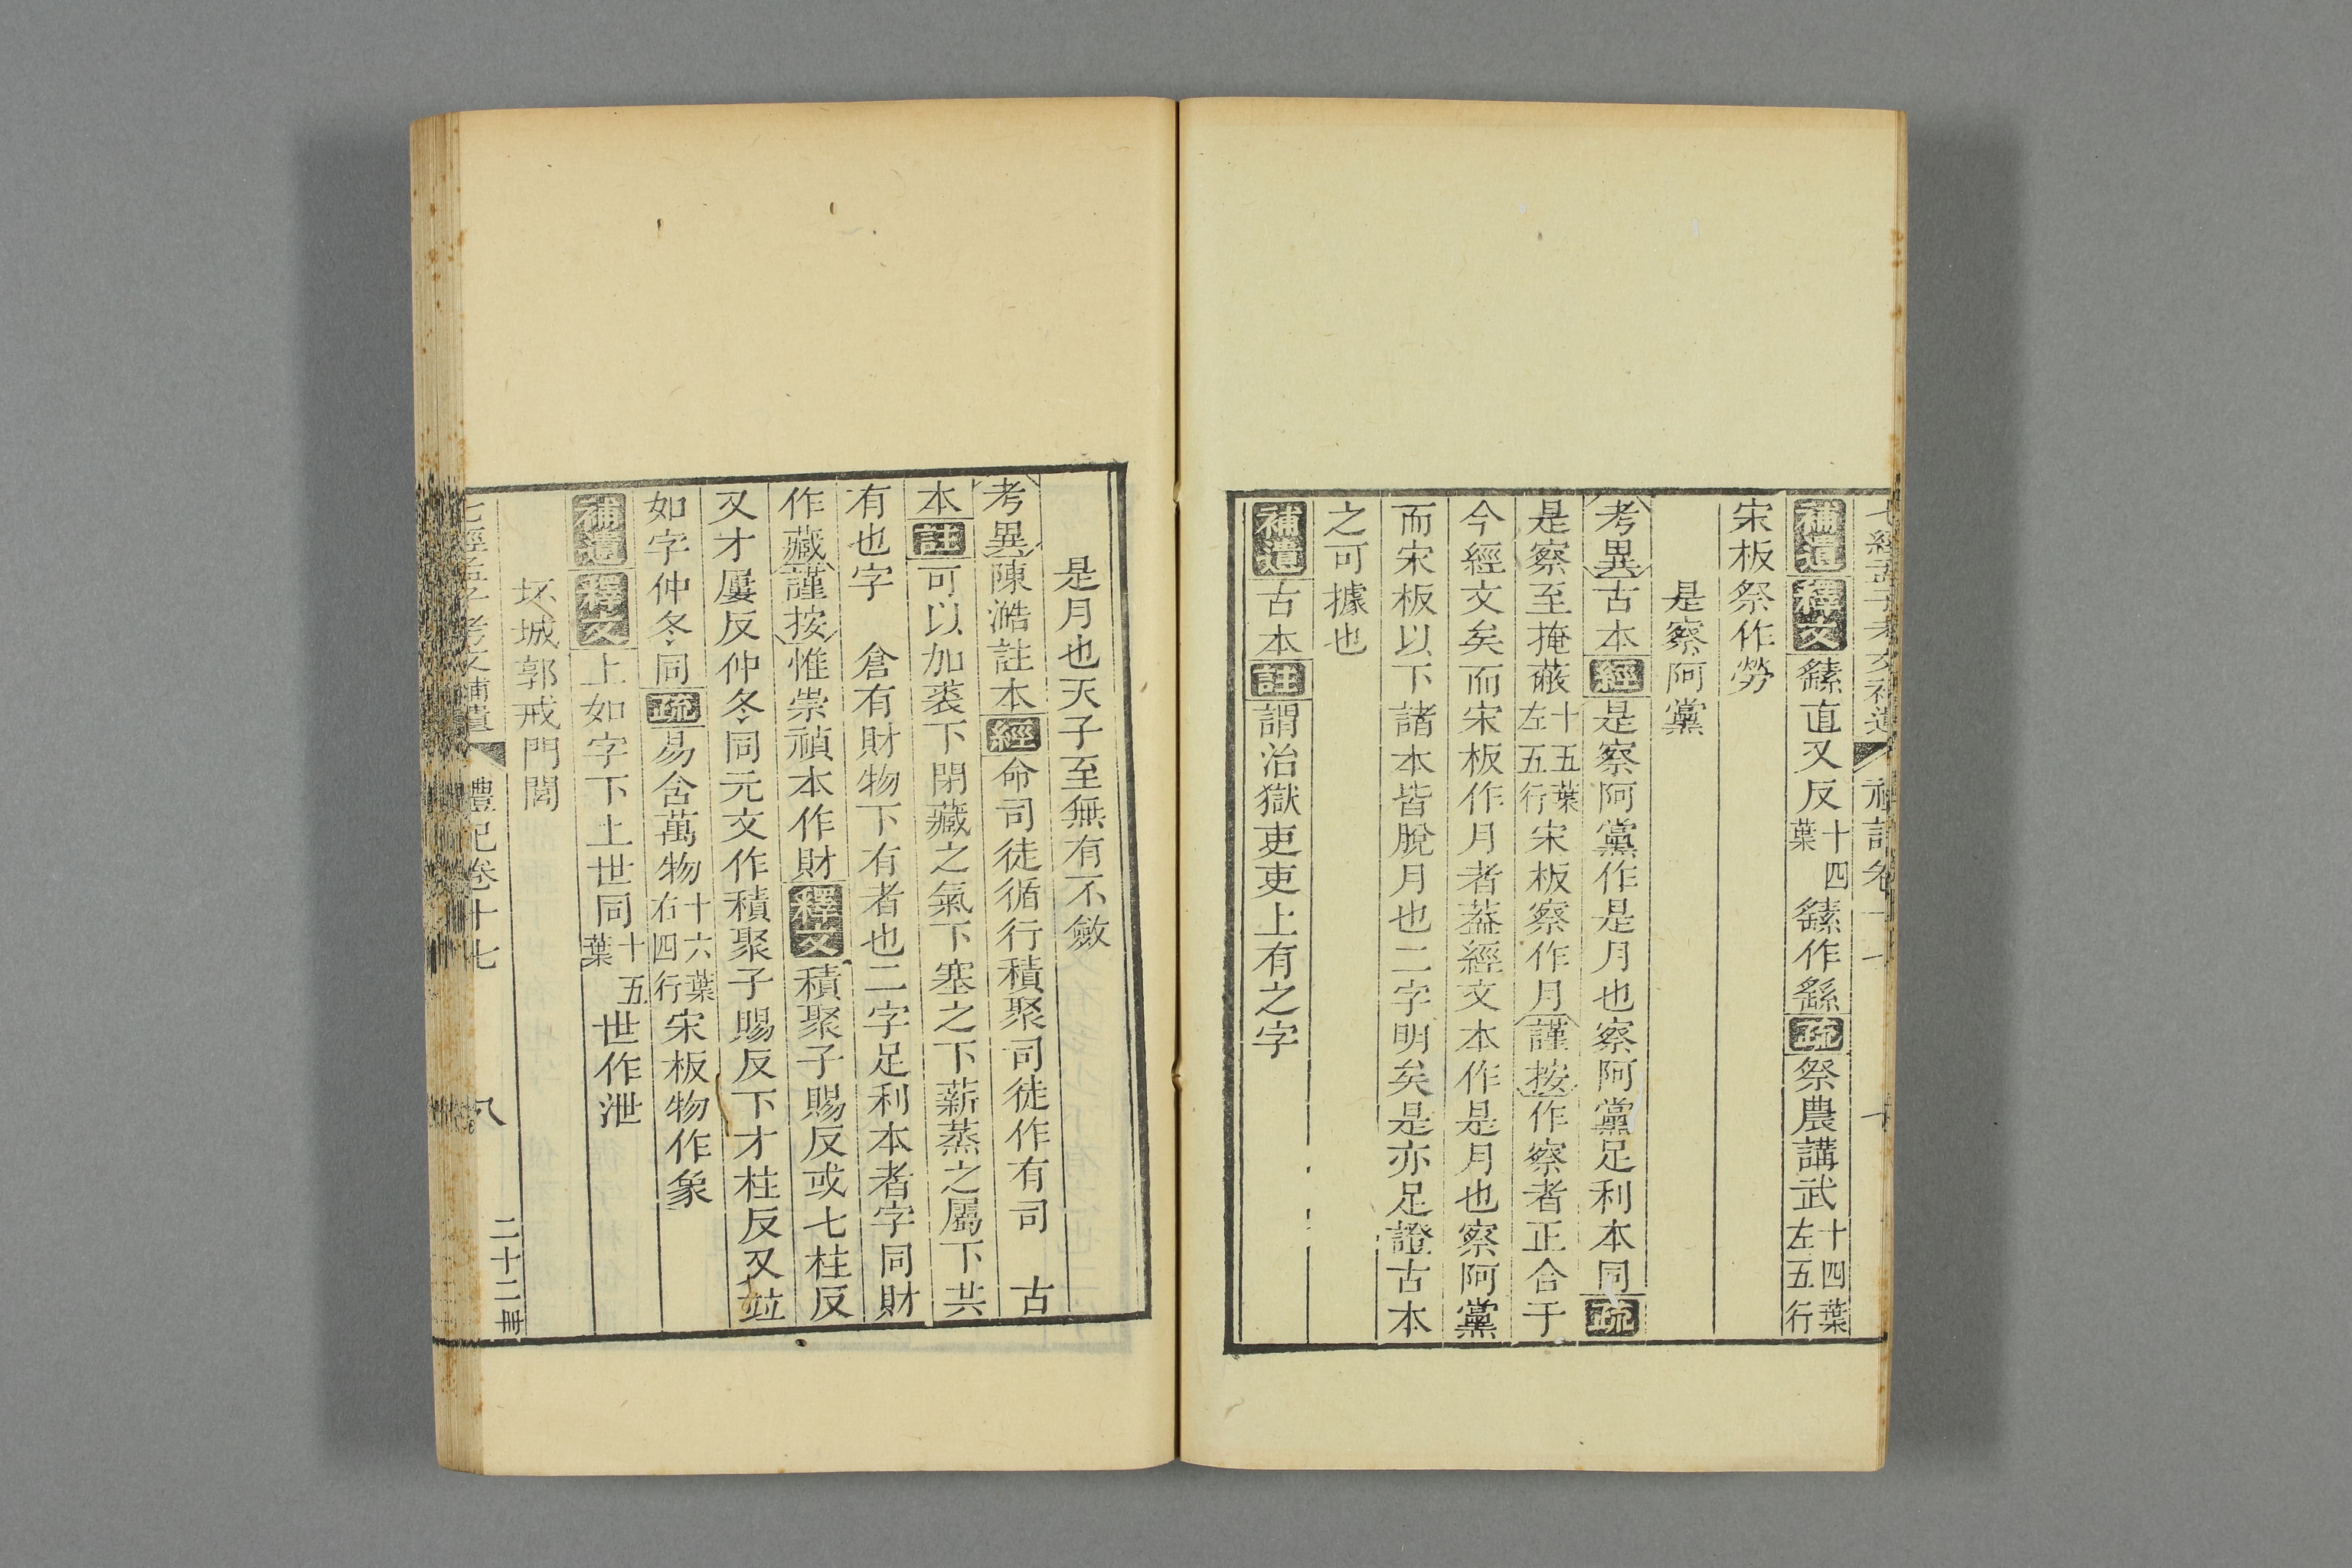 補遺釋文繇直又反十四葉繇作繇疏祭農講武十四葉左五行
宋板祭作勞
是察阿黨
考異古本經是察阿黨作是月也察阿黨足利本同疏
是察至掩蔽十五葉左五行宋板察作月謹按作察者正合于
今經文矣而宋板作月者葢經文本作是月也察阿黨
而宋板以下諸本皆脫月也二字明矣是亦足證古本
之可據也
補遺古本註謂治獄吏吏上有之字
是月也天子至無有不斂
考異陳澔註本經命司徒循行積聚司徒作有司 古
本註可以加裘下閉藏之氣下塞之下薪蒸之屬下共
有也字 倉有財物下有者也二字足利本者字同財
作藏謹按惟崇禎本作財釋文積聚子賜反或七柱反
又才屢反仲冬同元文作積聚子賜反下才柱反又竝
如字仲冬同疏易含萬物十六葉右四行宋板物作象
補遺釋文上如字下上世同十五葉世作泄
坏城郭戒門閭
七經孟子考文補遺 禮記卷十七 八 二十二冊